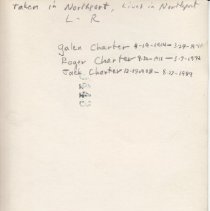 Taken in Northport, Lives in Northport
L - R
Galen Charter 4-19-1914 -
Roger Charter - 5-9-1992
Jack Charter 12-17-1918 - 8-27-1989